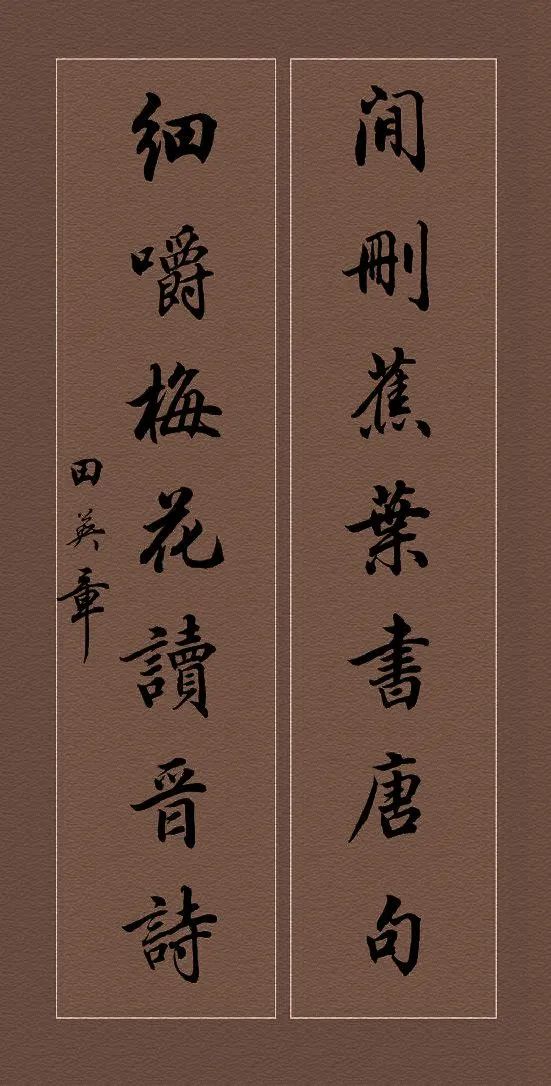 閒刪蕉葉書唐句
細嚼梅花讀晉詩
田英章